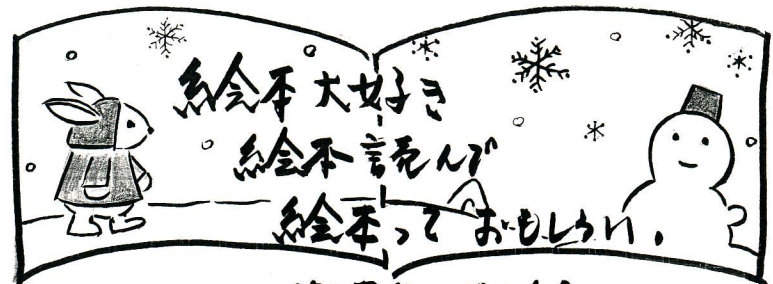 絵本大好き
絵本読んで
絵本って おもしろい.